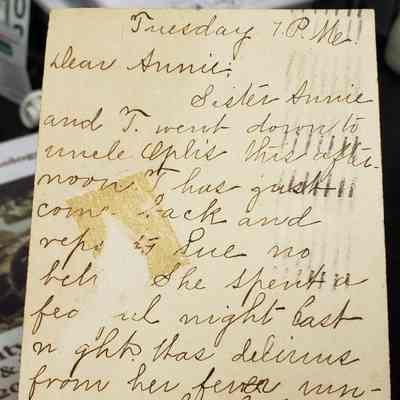 Tuesday 7. P. M.
Dear Annie:
Sister Annie
and T. went down to
uncle this after-
noon T has just
com back and
rep Sue no
bet She spent a
fea ul night last
n ght. Was delirius
from her fever